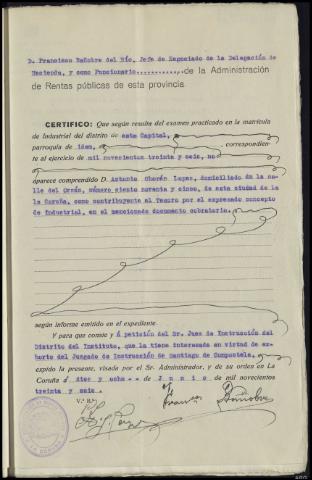 D. Francisco Bañobre del Río, Jefe de Negociado de la Delegación de
Hacienda, y como Funcionario............de la Administración
de Rentas públicas de esta provincia.
CERTIFICO: Que según resulta del examen practicado en la matrícula
de Industrial del distrito de esta Capital,
parroquia de idem, correspondien-
te al ejercicio de mil novecientos treinta y seis, no
aparece comprendido D. Antonio López, domiciliado en la ca-
lle del Orzán, número ciento noventa y cinco, de esta ciudad de la
la Coruña, como contribuyente al Tesoro por el expresado concepto
de Industrial, en el mencionado documento cobratorio.
según informe emitido en el expediente.
Y para que conste y á petición del Sr. Juez de Instrucción del
Distrito del Instituto, que la tiene interesada en virtud de ex-
horto del Juzgado de Instrucción de Santiago de Compostela,
expido la presente, visada por el Sr. Administrador, y de su orden en La
Coruña á diez y ocho - de Junio de mil novecientos
treinta y seis.
V.º B.º
Bañobre